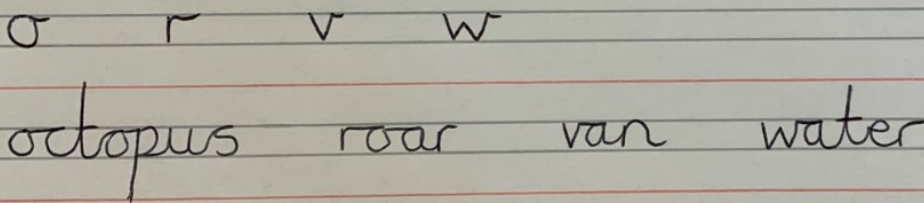 o r v w
octopus roar van water